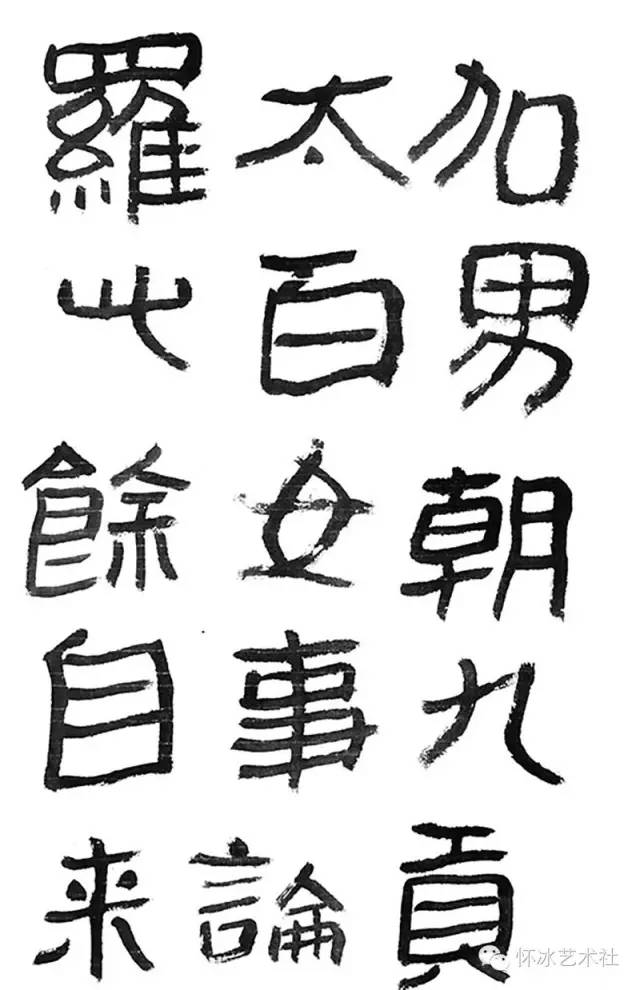 加男朝九貢
太百女事論
羅餘自来
怀冰艺术社